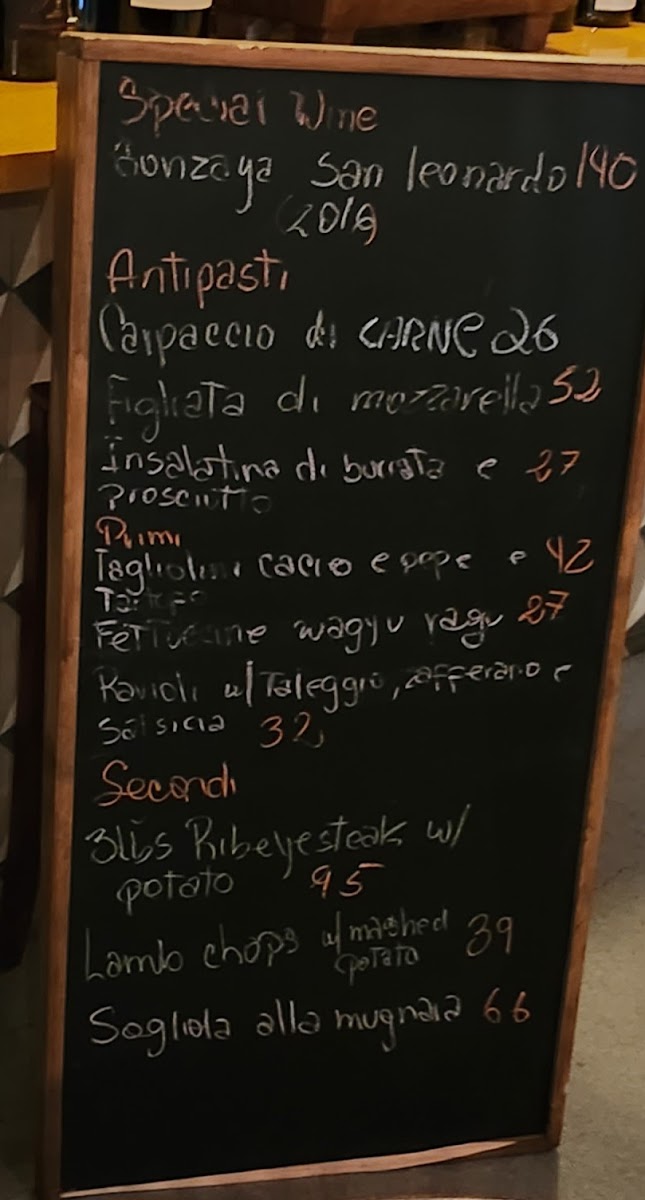 Special Wine
Gonzaga San leonardo 140
(2016)
Antipasti
Carpaccio di CARNE 26
Figliata di mozzarella 52
Insalatina di burrata e 27
prosciutto
Primi
Tagliolini cacio e pepe e 42
Tartufo
Fettuccine wagyu ragu 27
Ravioli w/ Taleggio, zafferano e
Salsicia 32
Secondi
3lbs Ribeye steak w/
potato 95
Lamb chops w/ mashed 39
potato
Sogliola alla mugnaia 66